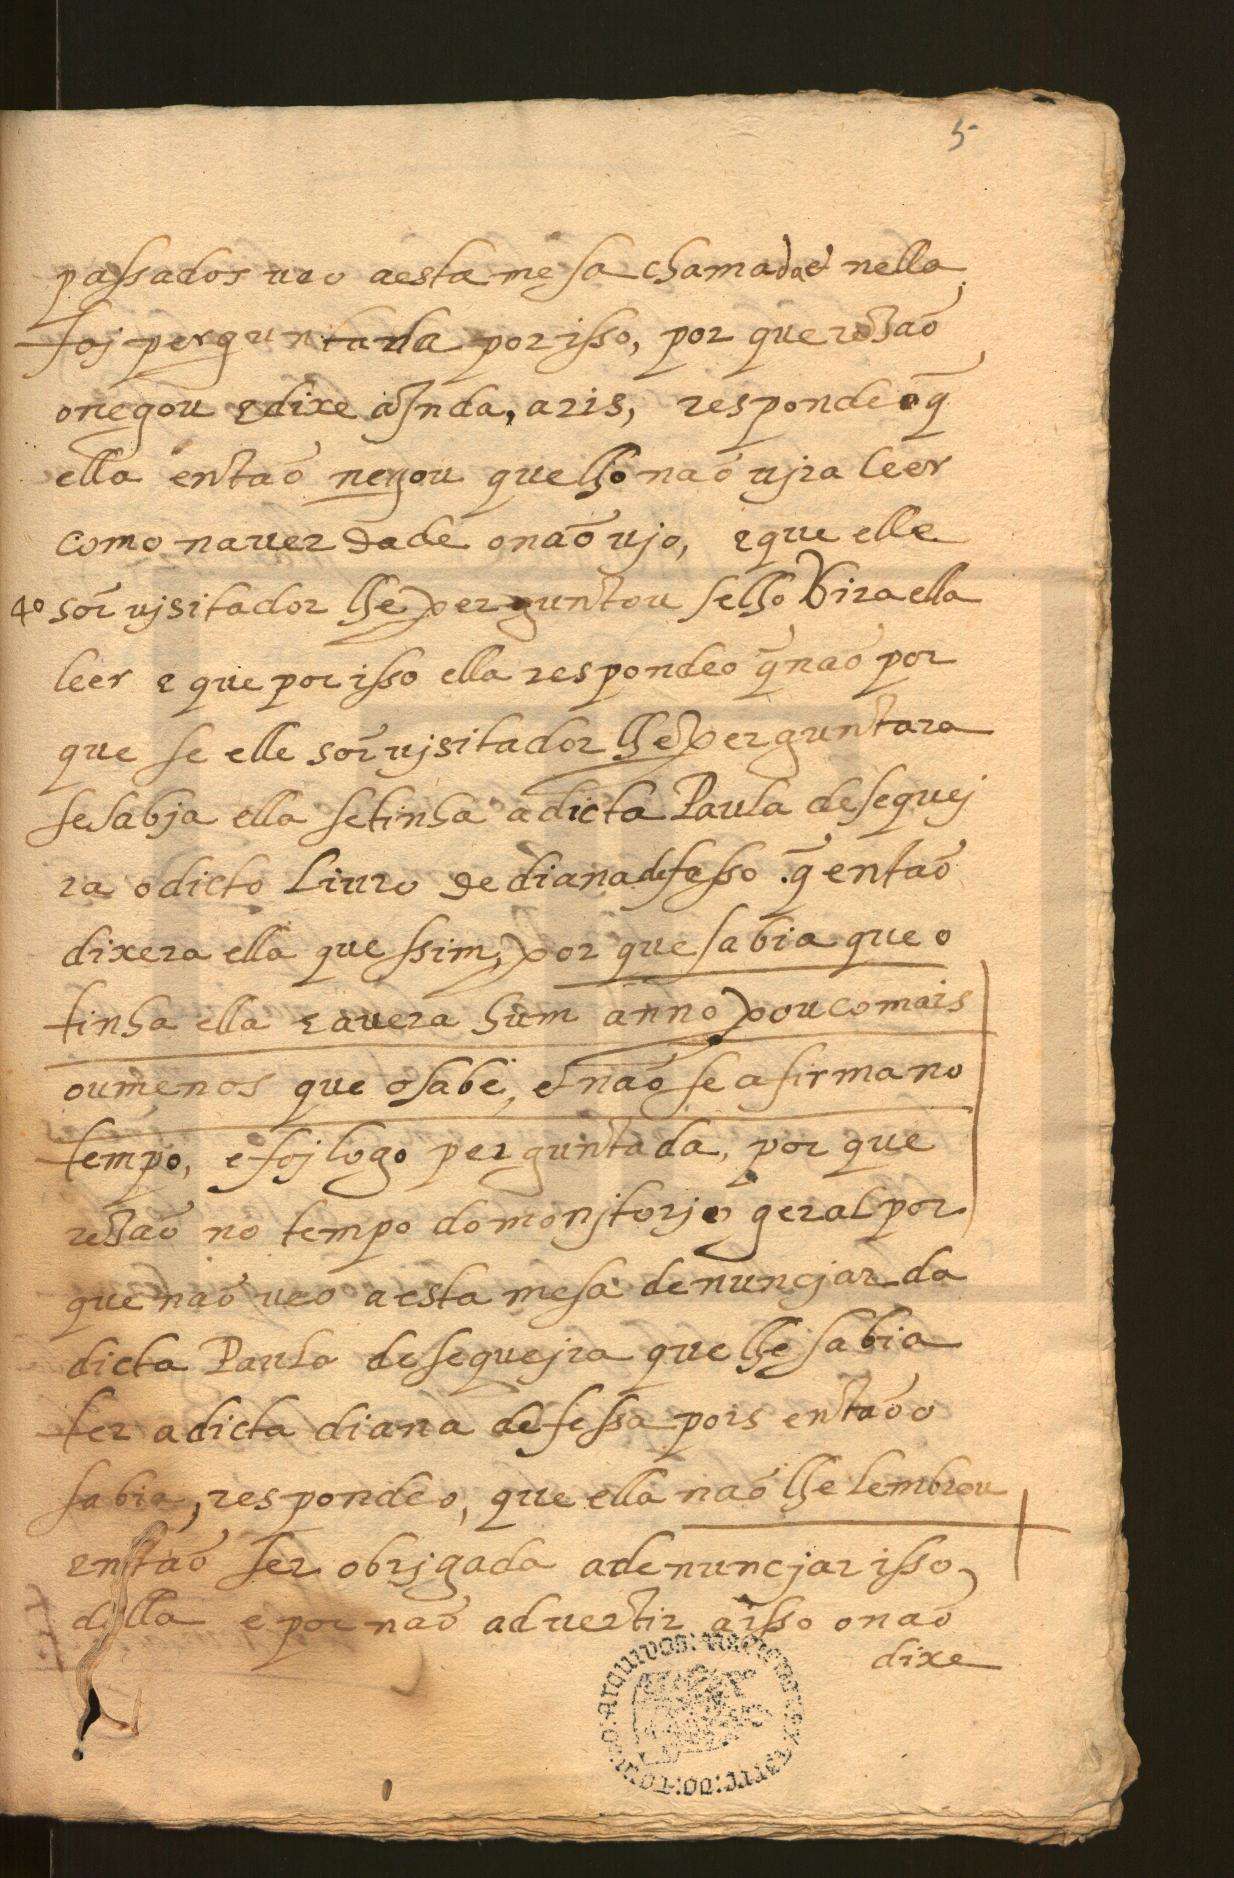 5
passados veo a esta mesa chamada e nella
foj perguntada por isso, por que rezaõ
o negou e dixe ajnda, a ris, respondeo q̃
ella entaõ negou que lho naõ vjra leer
como na verdade o naõ vjo, e que elle
40 sõr vjsitador lhe perguntou se lho Vira ella
leer e que por isso ella respondeo q̃ naõ por
que se elle sõr vjsitador lhe perguntara
se sabja ella se tinha a dicta Paula de sequej
ra o dicto Livro de diana defesso q̃ entaõ
dixera ella que ssim, por que sabia que o
tinha ella e avera hum anno pouco mais
ou menos que o sabe, e naõ se afirma no
tempo, e foj logo perguntada, por que
rezaõ no tempo do monjtorjo geral por
que naõ veo a esta mesa denuncjar da
dicta Paula de sequejra que lhe sabia
ter a dicta diana defessa pois entaõ o
sabia, respondeo, que ella naõ lhe lembrou
entaõ ser obrjgada a denuncjar isso
della e por naõ advertir a isso o naõ
dixe